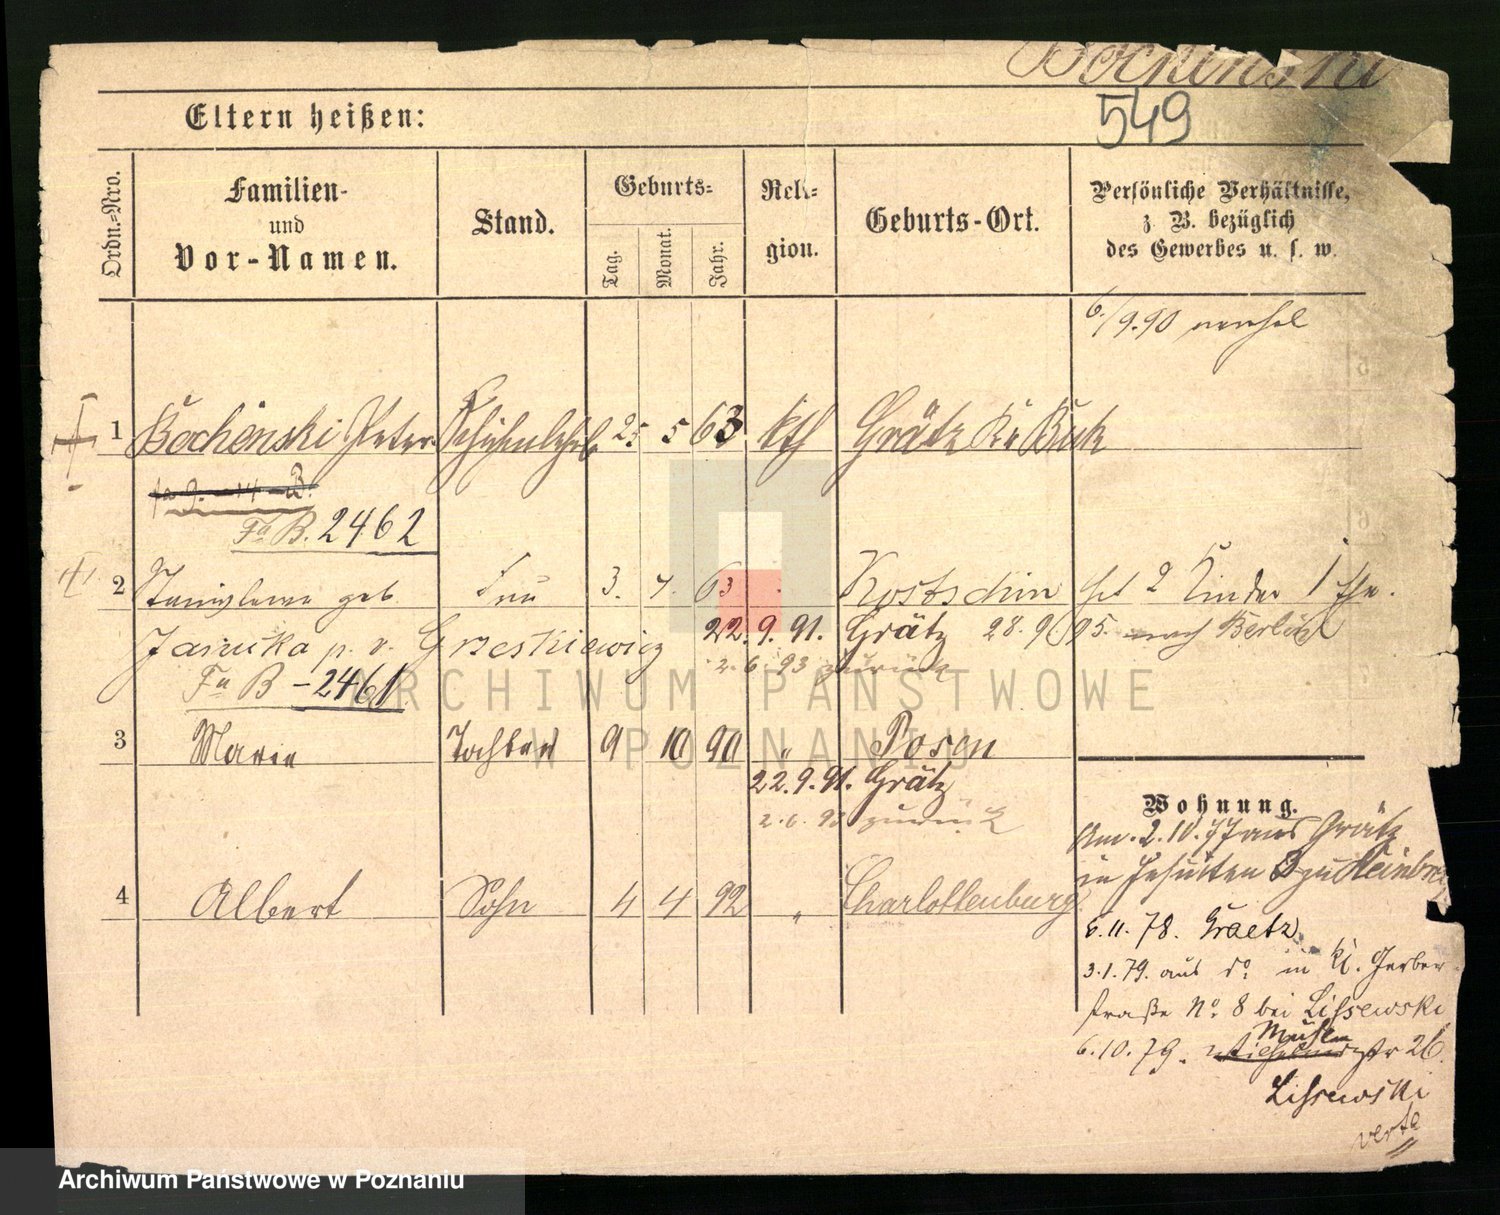 Bochenski
549
Eltern heißen:
Ordn.=Nro.
Familien-
und
Vor-Namen.
Stand.
Geburts=
Tag.
Monat.
Jahr.
Reli-
gion.
Geburts-Ort.
Persönliche Verhältnisse,
z B. bezüglich
des Gewerbes u. s. w.
6./9.90
1 Bochenski Peter 25 5 63 kth Grätz Kr Buk
Fa B. 2462
2 geb Frau 3. 63 Kostschin hat 2 Kinder 1 Ehe.
p. v. Grzeskiewicz 22.9.91. Grätz 28. 9. 95. nach Berlin
2. 6. 93 zurück
Fa B - 2461
3 Maria Tochter 9 10 90 " Posen
22.9.91. Grätz
2. 6. 93 zurück
4 Albert Sohn 4 4 92 " Charlottenburg
Wohnung.
Am 2.10.77 aus Grätz
in Jesuiten
6.11.78. Graetz
3.1.79. aus do in Kl. Gerber
straße No 8 bei Lissewski
Mühlen
6.10.79. str 26.
Lissewski
verte
ARCHIWUM PAŃSTWOWE
W POZNANIU
Archiwum Państwowe w Poznaniu